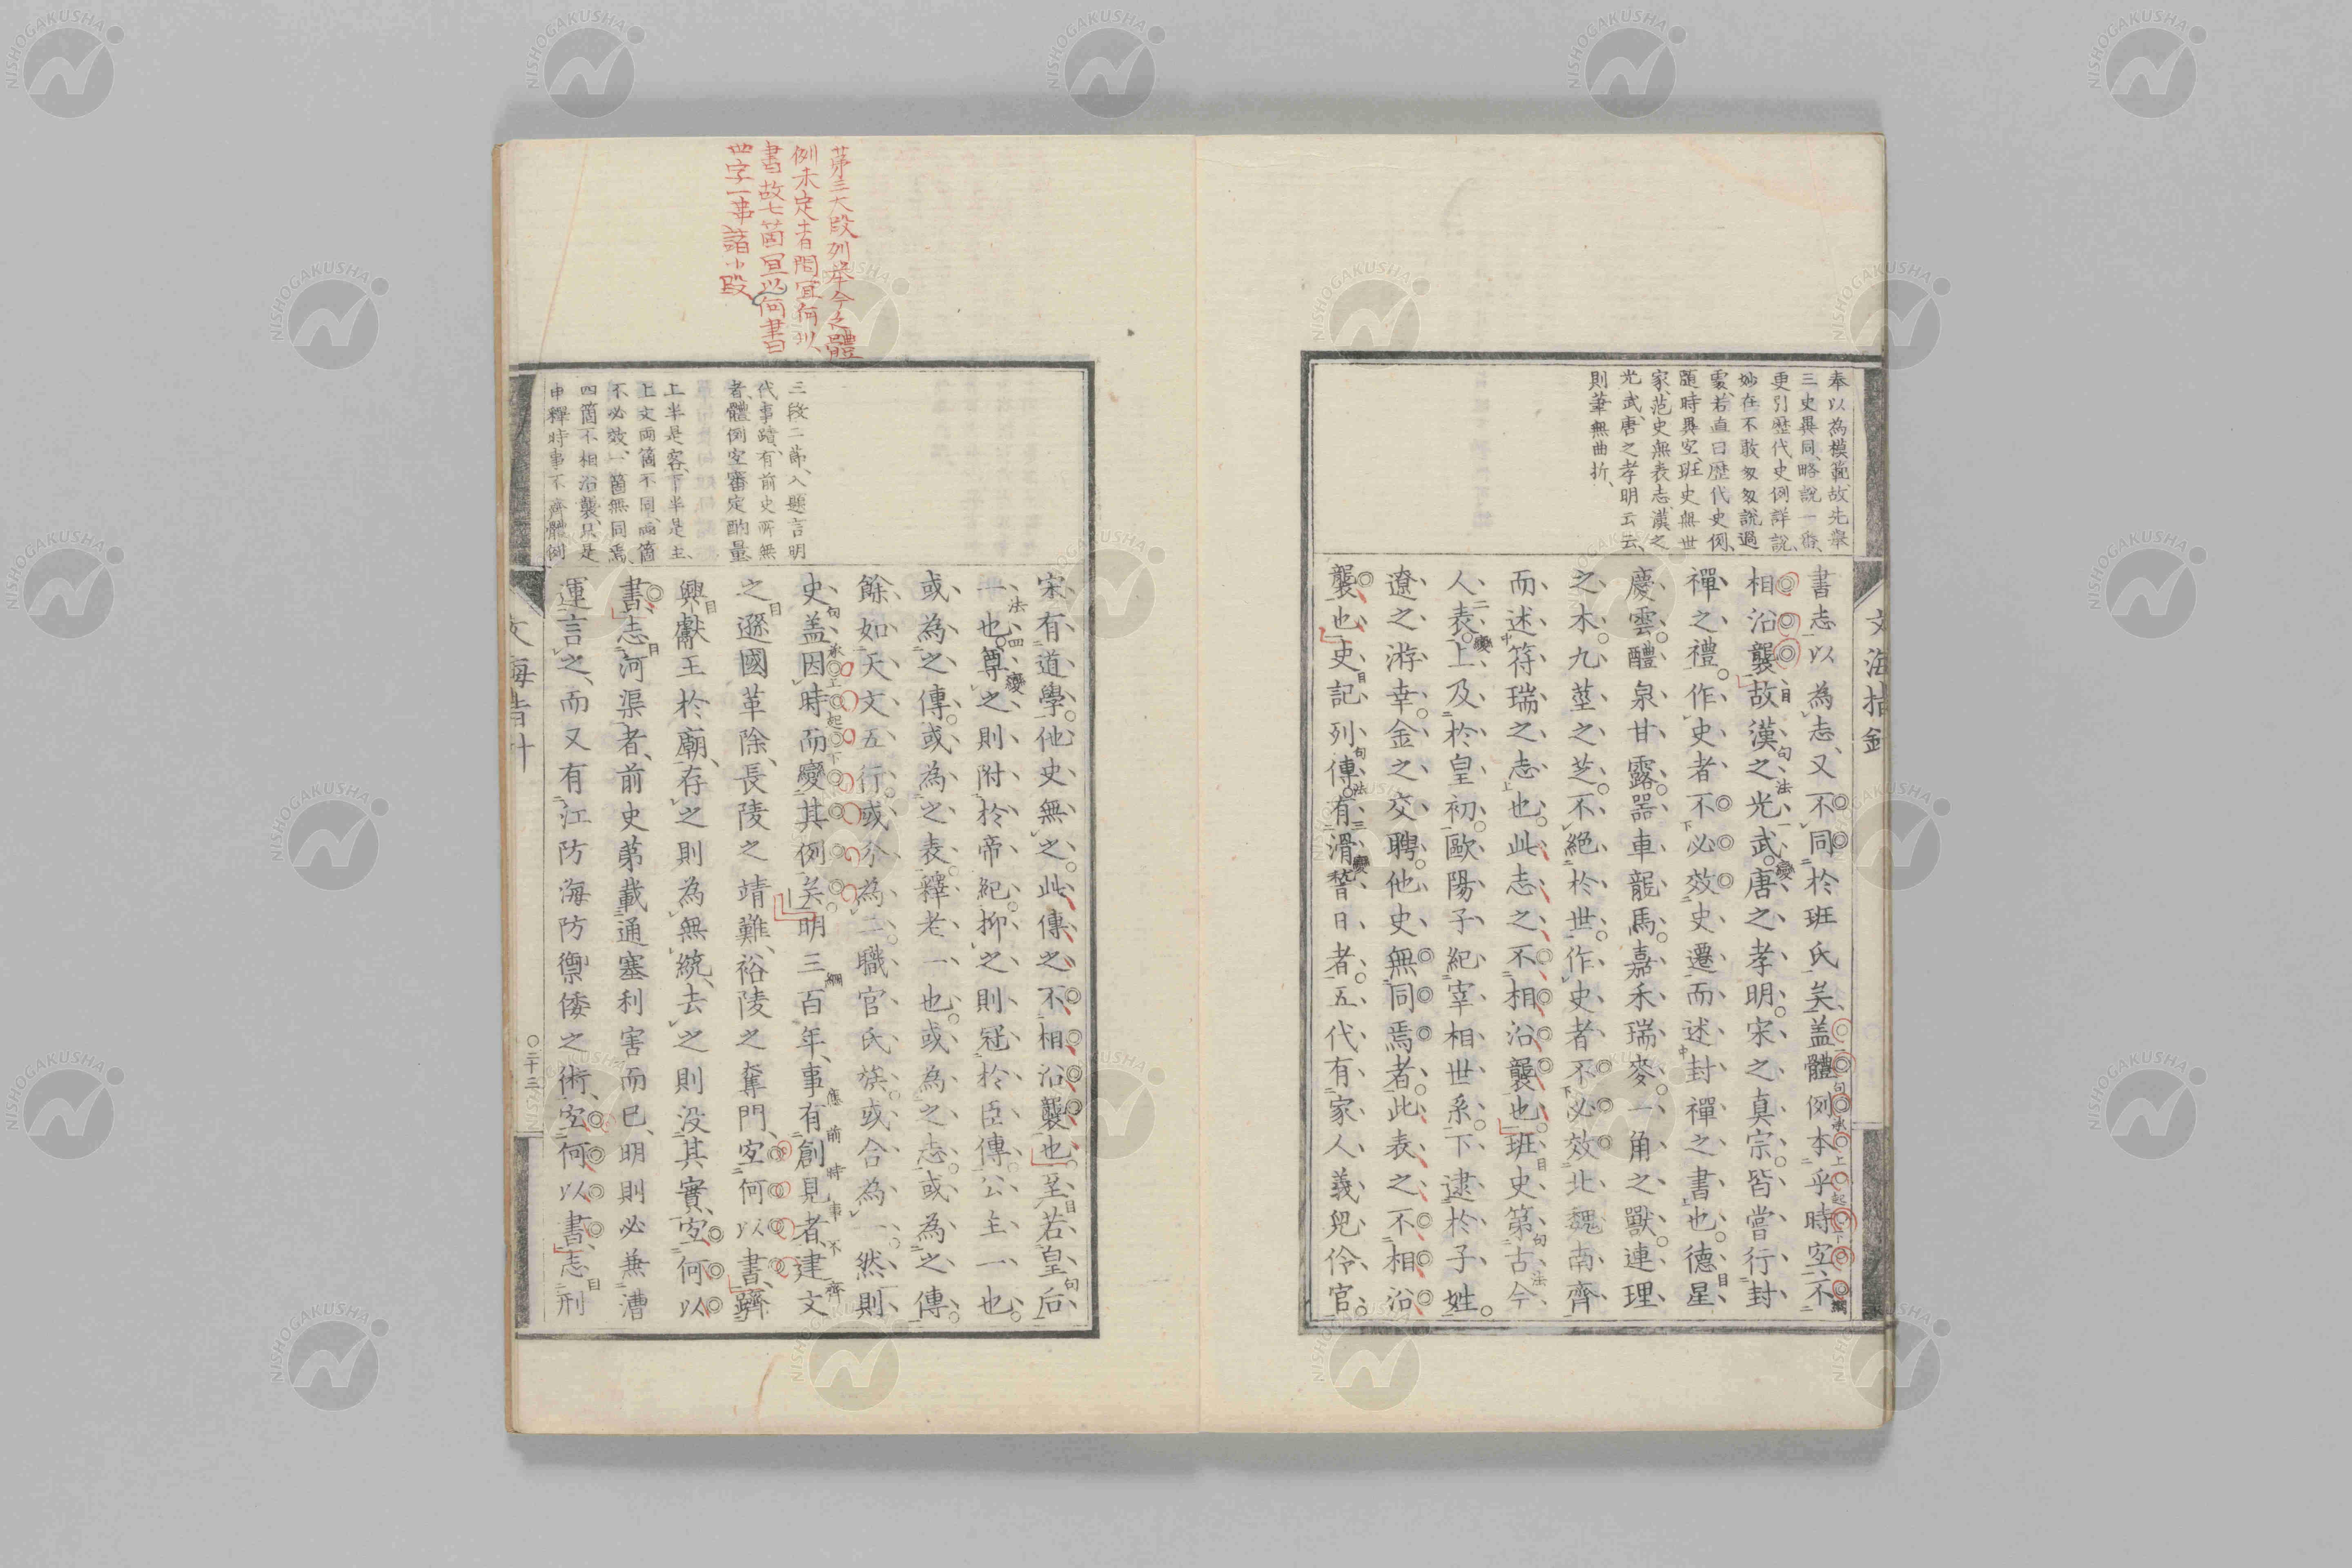 奉以為模範、故先舉
三史異同、略說一番、
更引歷代史例詳說、
妙在不敢匆匆說過
處、若直曰歷代史例、
隨時異宜、班史無世
家、范史無表志、漢之
光武、唐之孝明云云、
則筆無曲折、
書志以為志、又不同於班氏矣、盖體例本乎時宜、不
相沿襲、故漢之光武唐之孝明宋之真宗皆嘗行封
禪之禮作史者不必效史遷而述封禪之書也德星
慶雲醴泉甘露器車龍馬嘉禾瑞麥一角之獸連理
之木九莖之芝不絕於世作史者不必效北魏南齊
而述符瑞之志也此志之不相沿襲也班史第古今
人表上及於皇初歐陽子紀宰相世系下逮於子姓
遼之游幸金之交聘他史無同焉者此表之不相沿
襲也史記列傳有滑稽日者五代有家人義兒伶官
文海指針
第三大段列举今之體
例未定者問宜何以
書故七箇宜以何書
四字一事諸小段
三段二節、入題言明
代事蹟、有前史所無
者、體例宜審定酌量、
上半是客、下半是主、
上文兩箇不同、兩箇
不必效、一箇無同焉、
四箇不相沿襲、只是
申釋時事不齊體例
宋有道學他史無之此傳之不相沿襲也至若皇后
一也尊之則附於帝紀抑之則冠於臣傳公主一也
或為之傳或為之表釋老一也或為之志或為之傳
餘如天文五行或分為二職官氏族或合為一然則
史盖因時而變其例矣明三百年、事有創見者、建文
之遜國革除、長陵之靖難、裕陵之奪門、宜何以書、躋
興獻王於廟、存之則為無統、去之則没其實、宜何以
書、志河渠者、前史第載通塞利害而已、明則必兼漕
運言之、而又有江防海防禦倭之術、宜何以書、志刑
文海指針
二十三